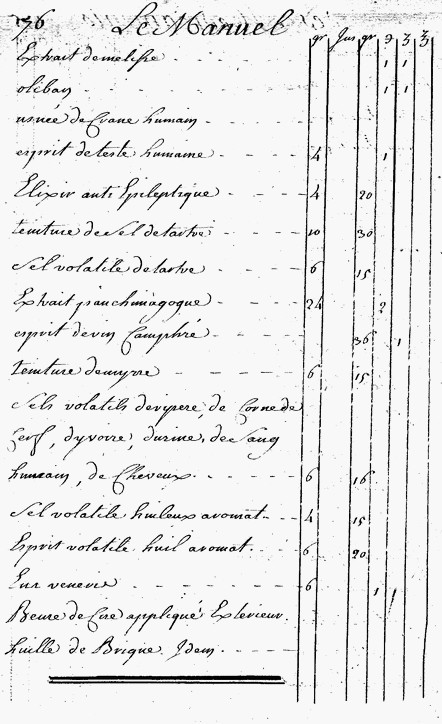 776 Le Manuel
gr Jus gr ℈ ʒ ℥
Extrait de melisse 1 1
oliban 1 1
usnée de Crane humain
esprit de teste humaine 4 1
Elixir anti Epileptique 4 20
teinture de Sel de tartre 10 30
Sel volatile de tartre 6 15
Extrait panchimagogue 24 2
esprit de vin Camphré 36 1
teinture de myrre 6 15
Sels volatils de vipere, de Corne de
Cerf, dyvoire, durine, de Sang
humain, de Cheveux 6 16
Sel volatile huileux aromat 4 15
Esprit volatile huil aromat 6 20
Ens veneris 6 1 1
Beure de Cire appliqué Exterieur.
huille de Brique Idem